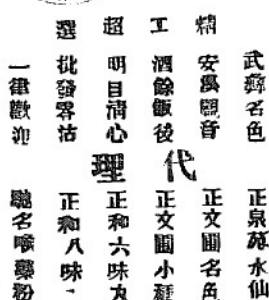 精工超選
武彝名色
安溪觀音
酒餘飯後
明目清心
批發零沽
一律歡迎
代理
正泉苑水仙
正文圃名色
正文圃小種
正和六味
正和八味
馳名喉藥粉